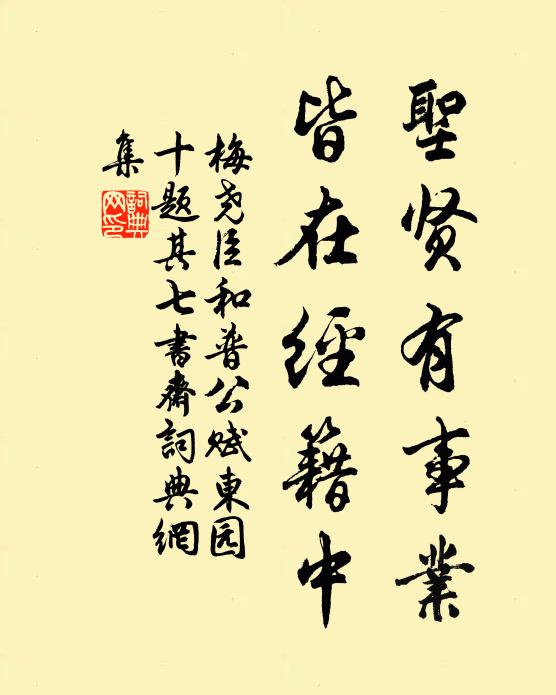 聖贤有事業
皆在經籍中
梅尧臣和普公赋東园
十题其七書齋詞典網
集
詞典
网印